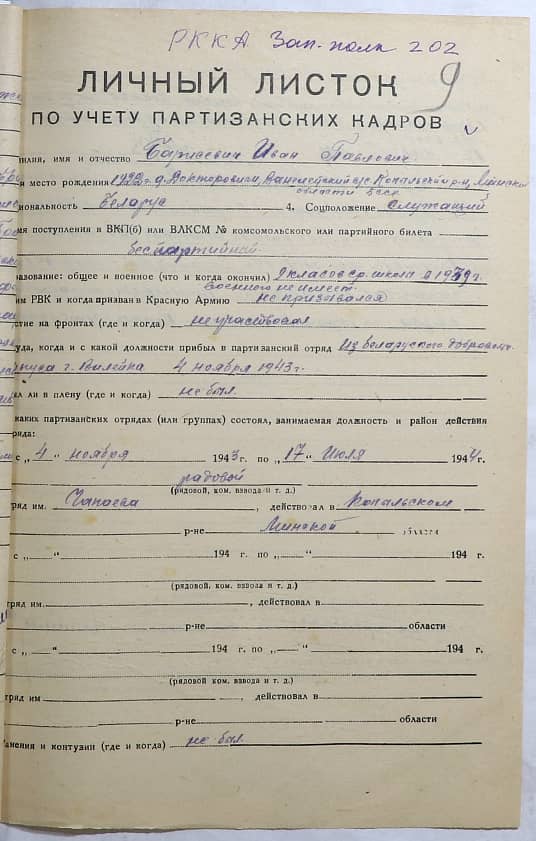 РККА Зап. полк 202
9
ЛИЧНЫЙ ЛИСТОК
ПО УЧЕТУ ПАРТИЗАНСКИХ КАДРОВ
милия, имя и отчество Иван Павлович
и место рождения д. Докторовичи, с/с. Копыльский р-н, Минской
области БССР
иональность Беларус 4. Соцположение служащий
мя поступления в ВКП(б) или ВЛКСМ № комсомольского или партийного билета
беспартийный
разование: общее и военное (что и когда окончил) 9 класов ср. школа в 1939г.
военного не имеет.
им РВК и когда призван в Красную Армию не призывался
стие на фронтах (где и когда) не участвовал
уда, когда и с какой должности прибыл в партизанский отряд Из беларуского
г. Вилейка 4 ноября 1943 г.
ал ли в плену (где и когда) не был.
каких партизанских отрядах (или группах) состоял, занимаемая должность и район действия
ряда:
с „4“ ноября 1943г. по „17“ Июля 1944г.
радовой
(рядовой, ком. взвода и т. д.)
ряд им. Чапаева, действовал в Копальском
р-не Минской области
с „ “ 194 г. по „ “ 194 г.
(рядовой, ком. взвода и т. д.)
тряд им. , действовал в
р-не области
с „ “ 194 г. по „ “ 194 г.
(рядовой, ком. взвода и т. д.)
тряд им , действовал в
р-не области
анения и контузии (где и когда) не был